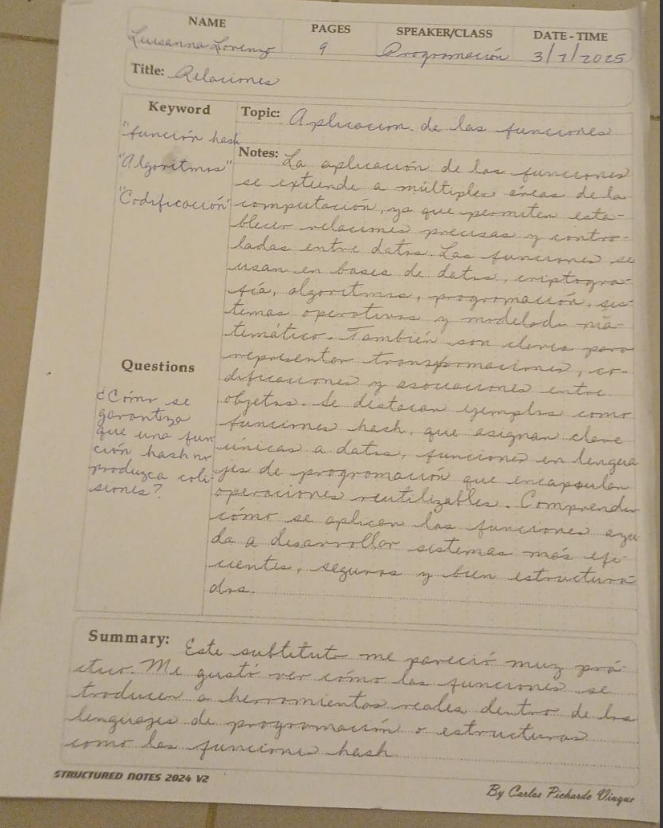 NAME PAGES SPEAKER/CLASS DATE - TIME
Luisanna Lorenzo 9 Programación 3/7/2025
Title: Relaciones
Keyword
"función hash
"Algoritmos"
"Codificación"
Questions
¿Cómo se
garantiza
que una fun
ción hash no
produzca coli
siones?
Topic: Aplicacion de las funciones
Notes: La aplicación de las funciones
se extiende a múltiples áreas de la
computación, ya que permiten esta-
blecer relaciones precisas y contro-
ladas entre datos. Las funciones se
usan en bases de datos, criptogra-
fía, algoritmos, programación, sis-
temas operativos y modelado ma-
temático. También son claves para
representar transformaciones, co-
dificaciones y asociaciones entre
objetos. Se destacan ejemplos como
funciones hash, que asignan clave
únicas a datos, funciones en lengua
jes de programación que encapsulan
operaciones reutilizables. Comprender
cómo se aplican las funciones ayu
da a desarrollar sistemas más efi-
cientes, seguros y bien estructura-
dos.
Summary: Este subtituto me pareció muy prá-
ctico. Me gustó ver cómo las funciones se
traducen a herramientas reales dentro de los
lenguajes de programación o estructuras
como las funciones hash
STRUCTURED NOTES 2024 V2
By Carlos Pichardo Vinque